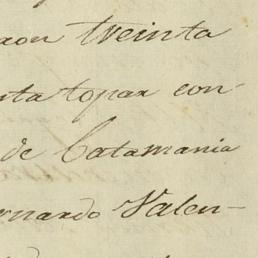 ron treinta
nta topar con-
de Catamania
ernardo Valen-